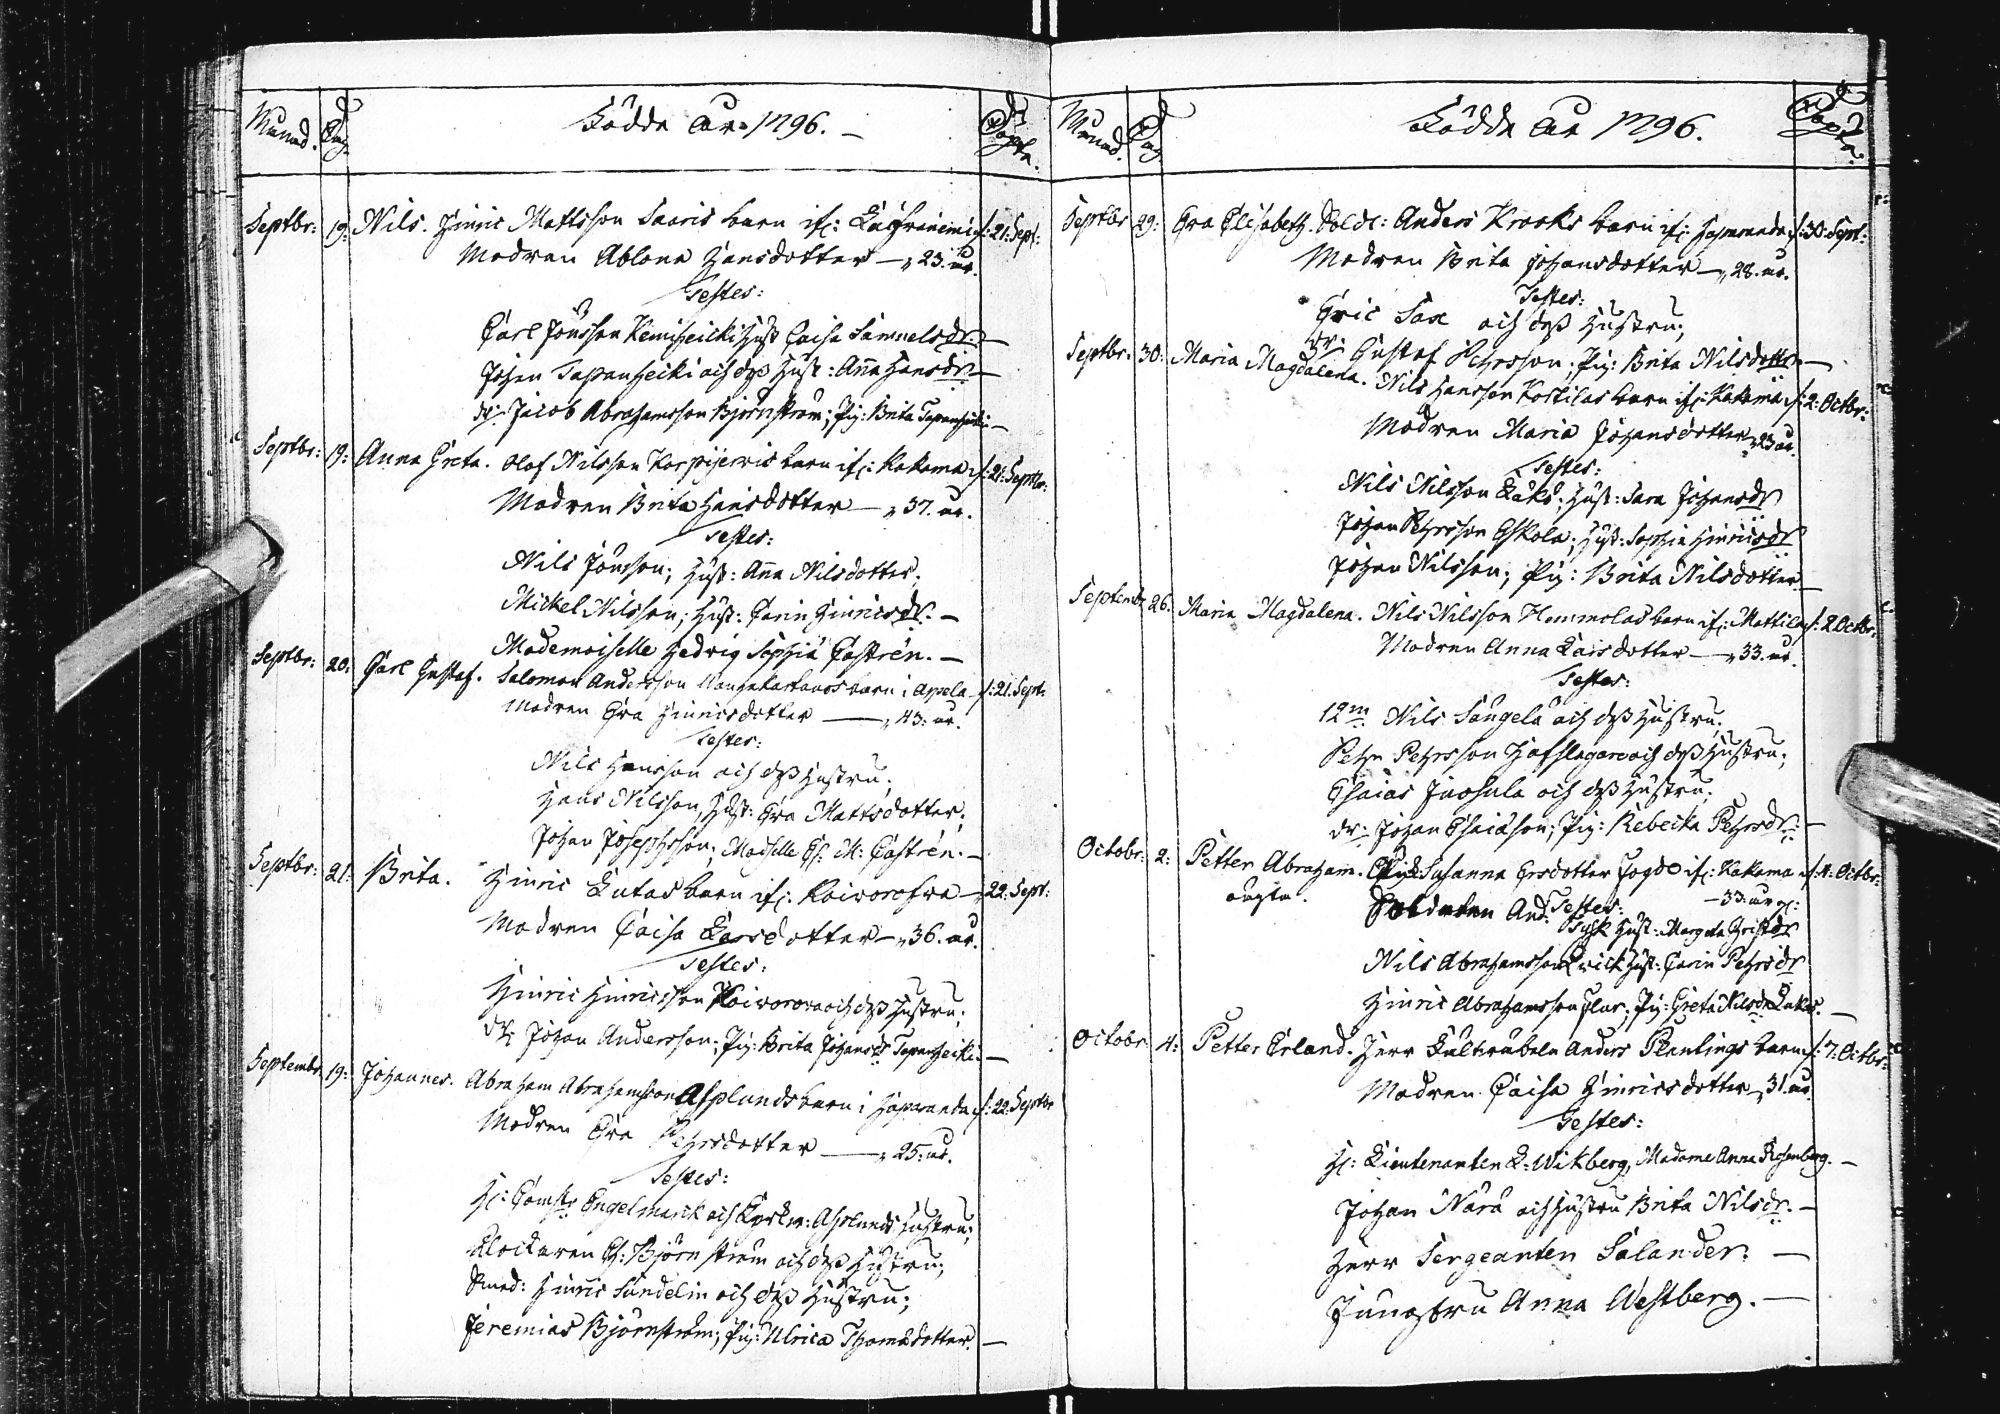 Månad. Dag. Födde År 1796. Döpte.
Septbr: 19: Nils. Hinric Mattsson Saaris barn if: f: 21: Sept:
Modren Ablona Hansdotter — 23. år.
Testes:
Carl Jönsson Kemiheicki Hust Caisa Samuelsdr. —
Johan Tapanheiki och dess Hust: Anna Hansdr —
dr: Jacob Abrahamsson Björnström; Pig: Brita Tapanheiki —
Septbr: 19: Anna Greta. Olof Nilsson Korpijervis barn if: Kakama f: 21: Septbr:
Modren Brita Hansdotter — 37. år.
Testes:
Nils Jönsson; Hust: Anna Nilsdotter.
Mickel Nilsson; Hust: Carin Hinricsdr. —
Mademoiselle Hedvig Sophia Castrén. —
Septbr: 20: Carl Gustaf. Salomon Andersson barn i Arpela f: 21. Sept:
Modren Eva Hinricsdotter — 43: år.
Testes:
Nils Hansson och dess Hustru;
Hans Nilsson, Hust: Eva Mattsdotter;
Johan Josephsson; Maiselle C: M: Castrén. —
Septbr: 21: Brita. Hinric barn if: 22: Sept:
Modren Caisa Larsdotter — 36. år.
Testes:
Hinric Hinricsson och dess Hustru;
dr: Johan Andersson; Pig: Brita Johansdr Tapanheiki —
Septembr: 19: Johannes. Abraham Abrahamsson Asplunds barn i Haparanda f: 22: Septbr
Modren Eva Pehrsdotter — 25: år.
Testes:
H: Engelmark och Asplunds Hustru;
Klockaren C: Björnström och dess Hustru;
Smed: Hinric Sundelin och dess Hustru;
Jeremias Björnström; Pig: Ulrica Thomædotter. —
Månad. Dag Födde År 1796. Döpte.
Septbr 29: Eva Elisabeth. Sold: Anders Krooks barn if: Haparanda f: 30: Sept:
Modren Brita Johansdotter — 28. år.
Testes:
Eric Sax och dess Hustru;
dr: Gustaf Pehrsson; Pig: Brita Nilsdotter —
Septbr: 30: Maria Magdalena. Nils Hansson Kostilas barn if: Kakama f: 2: Octbr:
Modren Maria Johansdotter 23 år.
Testes:
Nils Nilsson; Hust: Sara Johansdr
Johan Pehrsson Eskola; Hust: Sophia Hinricsdr
Johan Nilsson; Pig: Brita Nilsdotter —
Septembr 26. Maria Magdalena. Nils Nilsson Hemmolas barn if: Mattila f: 2 Octbr:
Modren Anna Larsdotter — 33. år.
Testes:
12m Nils och dess Hustru;
Pehr Pehrsson Hofslagare och dess Hustru;
Esaias Juosula och dess Hustru;
dr: Johan Esaiasson; Pig: Rebecka Pehrsdr: —
Octobr: 2: Petter Abraham. Pig: Susanna Ersdotter if: Kakama f: 4: Octbr:
oägta. — 33: år
Testes:
Soldaten And: Hust: Margeta
Nils Abrahamsson Hust: Carin Pehrsdr
Hinric Abrahamsson; Pig: Greta Nilsdr —
Octobr: 4: Petter Erland. Herr Anders Plantings barn f: 7: Octbr:
Modren Caisa Hinricsdotter 31 år.
Testes:
H: Lieutenanten L: Wikberg, Madame Anna Rosenberg. —
Johan Nara och Hustru Brita Nilsdr. —
Herr Sergeanten Salander: —
Jungfru Anna Westberg. —